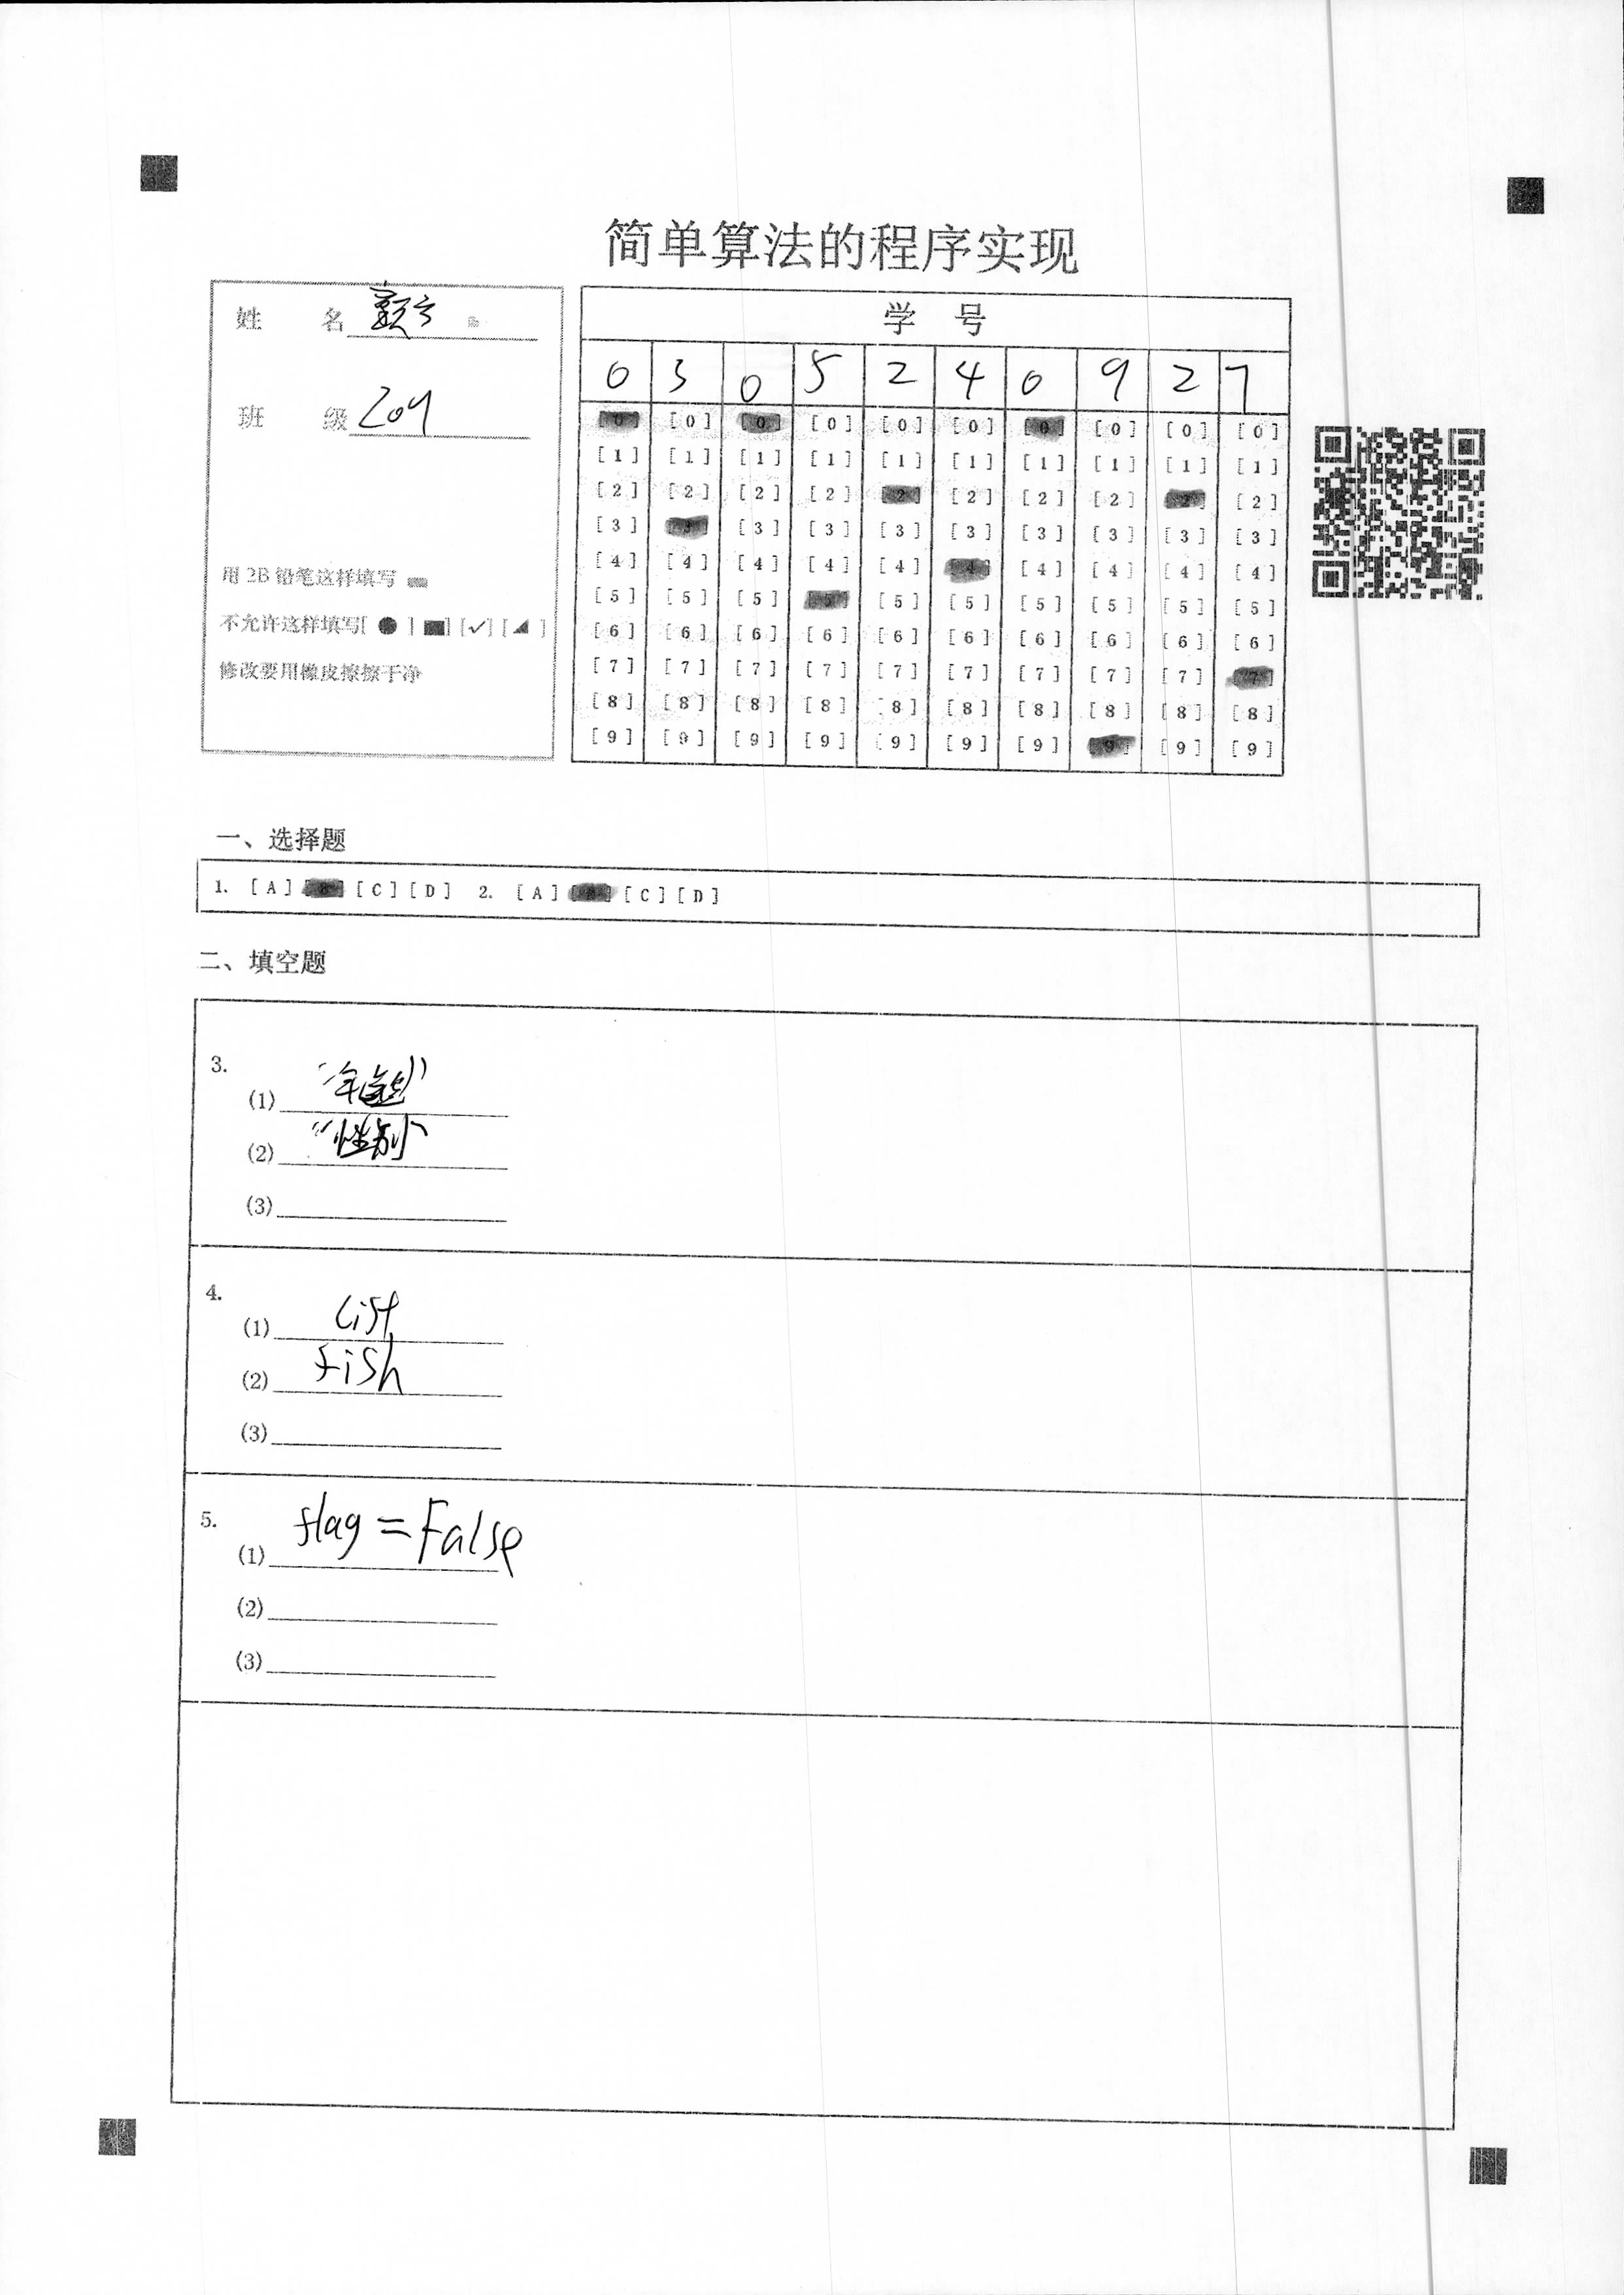 简单算法的程序实现
姓 名
班 级 204
用 2B 铅笔这样填写
不允许这样填写[ ● ] [■] [✓] [◢ ]
修改要用橡皮擦擦干净
学 号
0 3 0 5 2 4 0 9 2 7
[0] [0] [0] [0] [0] [0] [0] [0] [0] [0]
[1] [1] [1] [1] [1] [1] [1] [1] [1] [1]
[2] [2] [2] [2] [2] [2] [2] [2] [2] [2]
[3] [3] [3] [3] [3] [3] [3] [3] [3] [3]
[4] [4] [4] [4] [4] [4] [4] [4] [4] [4]
[5] [5] [5] [5] [5] [5] [5] [5] [5] [5]
[6] [6] [6] [6] [6] [6] [6] [6] [6] [6]
[7] [7] [7] [7] [7] [7] [7] [7] [7] [7]
[8] [8] [8] [8] [8] [8] [8] [8] [8] [8]
[9] [9] [9] [9] [9] [9] [9] [9] [9] [9]
一、选择题
1. [A] [B] [C] [D] 2. [A] [B] [C] [D]
二、填空题
3.
(1)
(2) "性别"
(3)
4.
(1) list
(2) fish
(3)
5.
(1) flag = False
(2)
(3)